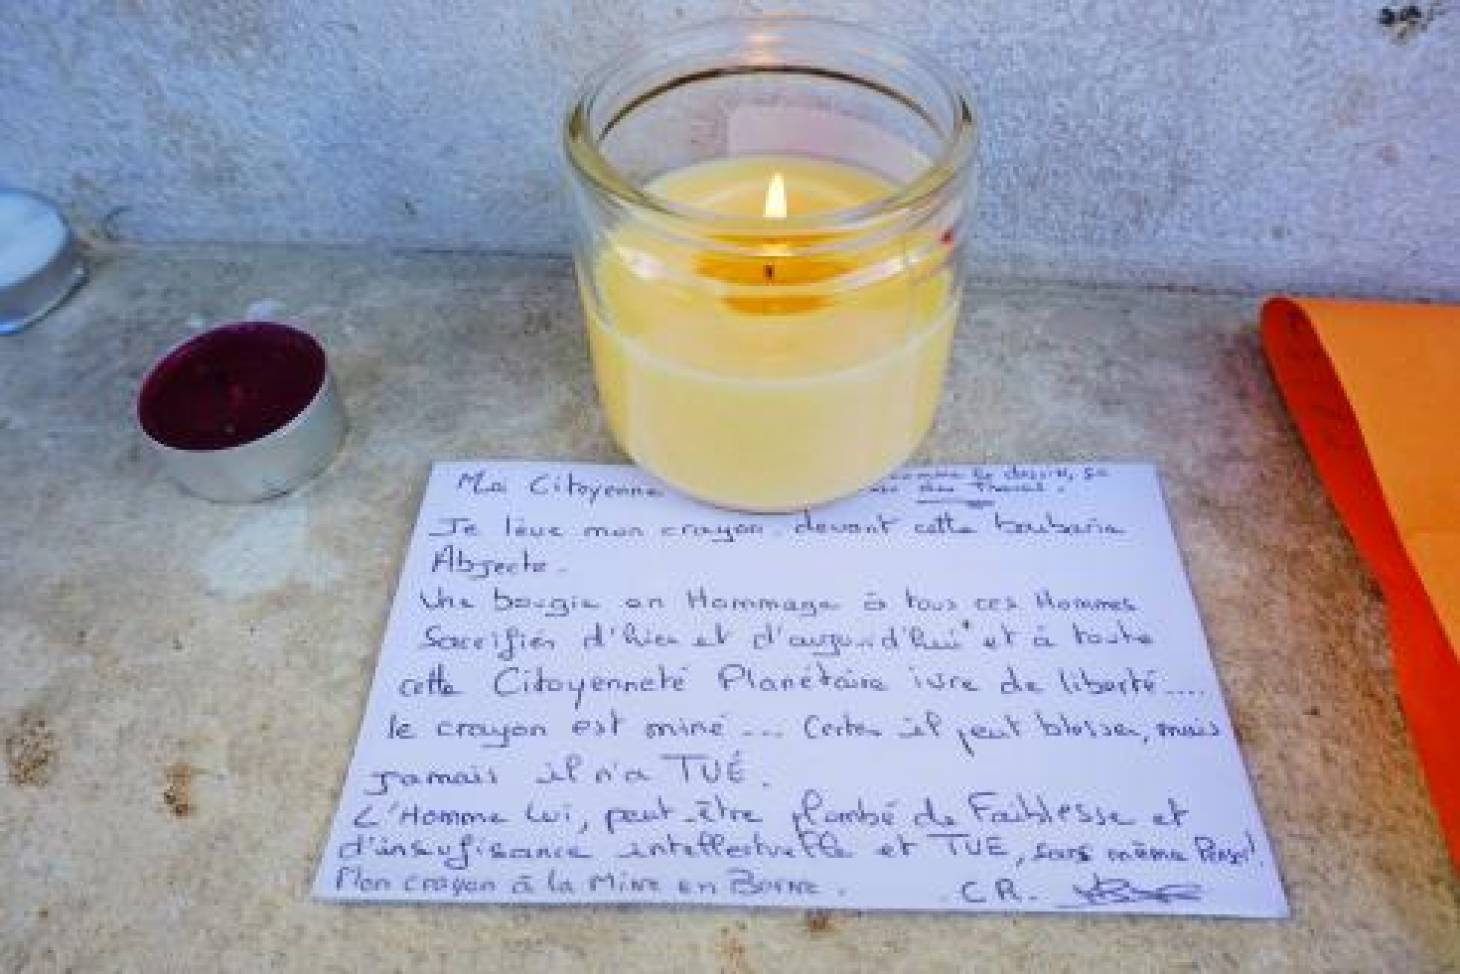 Moi Citoyenne
comme le dessin, se
Je lève mon crayon devant cette barbarie
Abjecte.
Une bougie en Hommage à tous ces Hommes
Sacrifiés d'hier et d'aujourd'hui* et à toute
cette Citoyenneté Planétaire ivre de liberté....
le crayon est miné ... Certes il peut blesser, mais
jamais il n'a TUÉ.
L'Homme Lui, peut-être plombé de Faiblesse et
d'insufisance intellectuelle et TUE, sans même Penser!
Mon crayon à la Mine en Berne. C R.